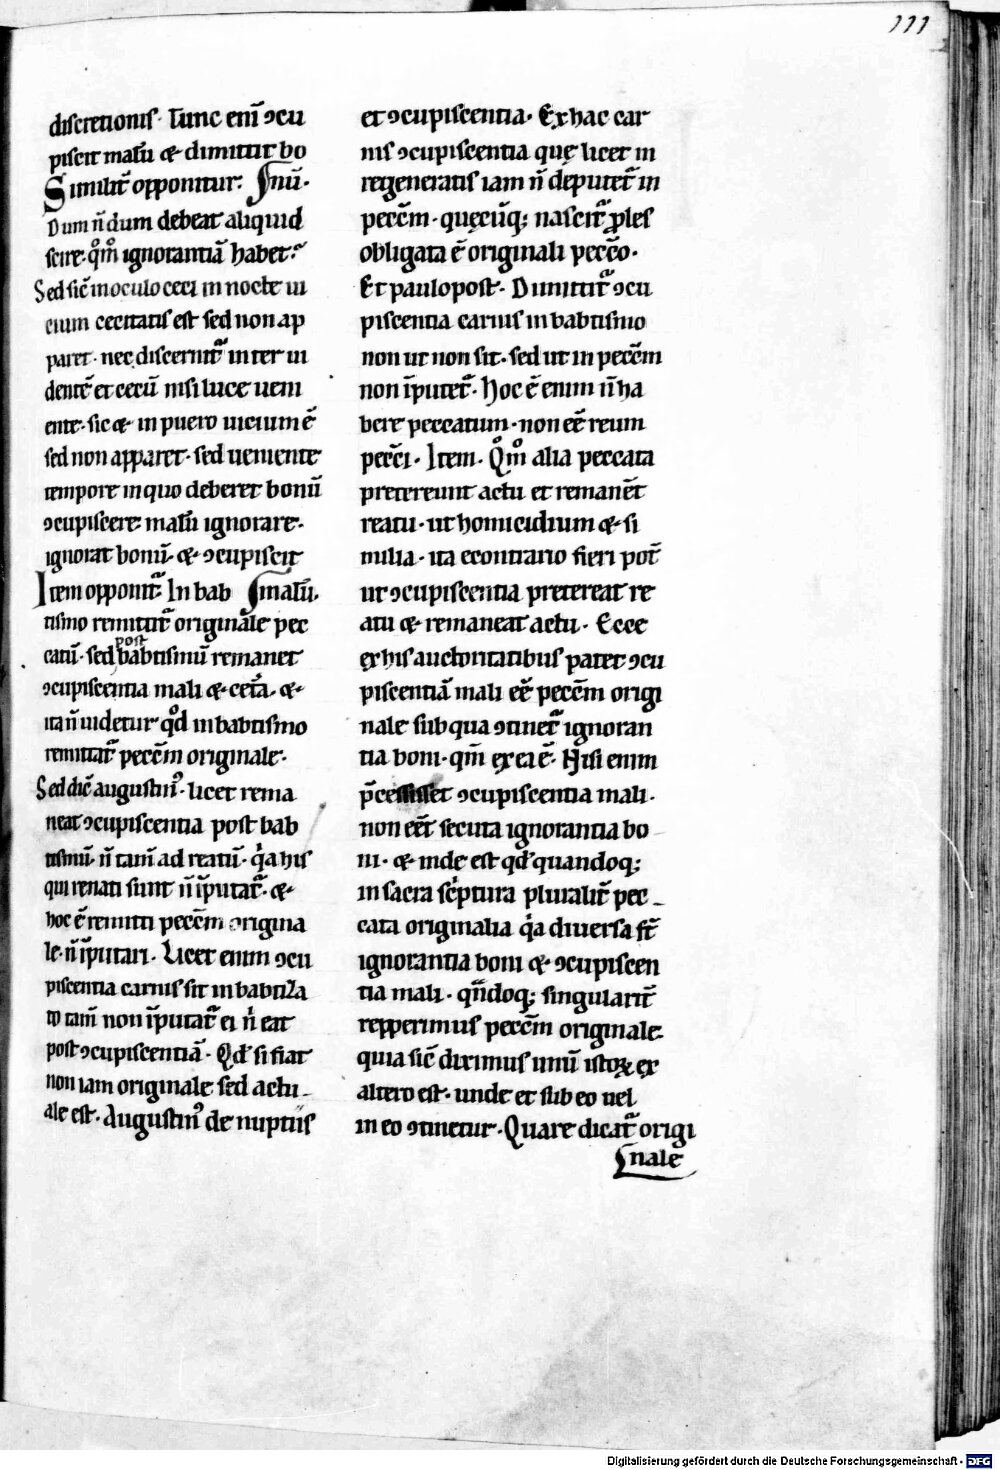 111
discretionis· Tunc eni̅ ꝯcu
piscit malu̅ & dimittit bo
Similit̅ opponitur: ſnu̅·
Dum n̅dum debeat aliquid
scire· qm̊ ignorantia̅ habet·
Sed sic̅ inoculo ceci in nocte ui
cium cecitatis est sed non ap
paret· nec discernit᷑ inter ui
dente̅ et cecu̅ nisi luce ueni
ente· sic & in puero uicium e̅
sed non apparet· sed ueniente
tempore in quo deberet bonu̅
ꝯcupiscere malu̅ ignorare·
ignorat bonu̅· & ꝯcupiscit
Item opponit᷑ In bab ſmalu̅·
tismo remittit᷑ originale pec
catu̅· sed post babtismu̅ remanet
ꝯcupiscentia mali & cet̅a· &
ita n̅ uidetur qd̊ in babtismo
remittat᷑ pecc̅m originale·
Sed dic̅ augustin⁹· licet rema
neat ꝯcupiscentia post bab
tismu̅· n̅ tam̅ ad reatu̅· qͥa his
qui renati sunt n̅ i̅putat᷑· &
hoc e̅ remitti pecc̅m origina
le· n̅ i̅putari· Licet enim ꝯcu
piscentia carnis sit in babtiza
to tam̅ non i̅putat᷑ ei nͥ eat
post ꝯcupiscentia̅· Qđ si fiat
non iam originale sed actu
ale est· Augustin⁹ de nuptiis
et ꝯcupiscentia· Ex hac car
nis ꝯcupiscentia quę licet in
regeneratis iam n̅ deputet᷑ in
pecc̅m· quęcu̅q; nascit᷑ ꝓles
obligata e̅ originali pecc̅o·
Et paulo post· Dimittit᷑ ꝯcu
piscentia carius in babtismo
non ut non sit· sed ut in pecc̅m
non i̅putet᷑· Hoc e̅ enim n̅ ha
bere peccatum· non ee̅ reum
pecc̅i· Item· Qm̊ alia peccata
pretereunt actu et remane̅t
reatu· ut homicidium & si
milia· ita econtrario fieri pot̅
ut ꝯcupiscentia pretereat re
atu & remaneat actu· Ecce
ex his auctoritatibus patet ꝯcu
piscentia̅ mali ee̅ pecc̅m origi
nale sub qua ꝯtinet᷑ ignoran
tia boni· qm̅ ex ea e̅· Nisi enim
p̅cessisset ꝯcupiscentia mali·
non ee̅t secuta ignorantia bo
ni· & inde est qđ quandoq;
in sacra scͥptura pluralit̅ pec
cata originalia qͥa diuersa st̅
ignorantia boni & ꝯcupiscen
tia mali· qn̅doq; singularit̅
repperimus pecc̅m originale·
quia sic̅ diximus unu̅ istoꝝ ex
altero est· unde et sub eo uel
in eo ꝯtinetur· Quare dicat᷑ origi
ſnale
Digitalisierung gefördert durch die Deutsche Forschungsgemeinschaft - DFG